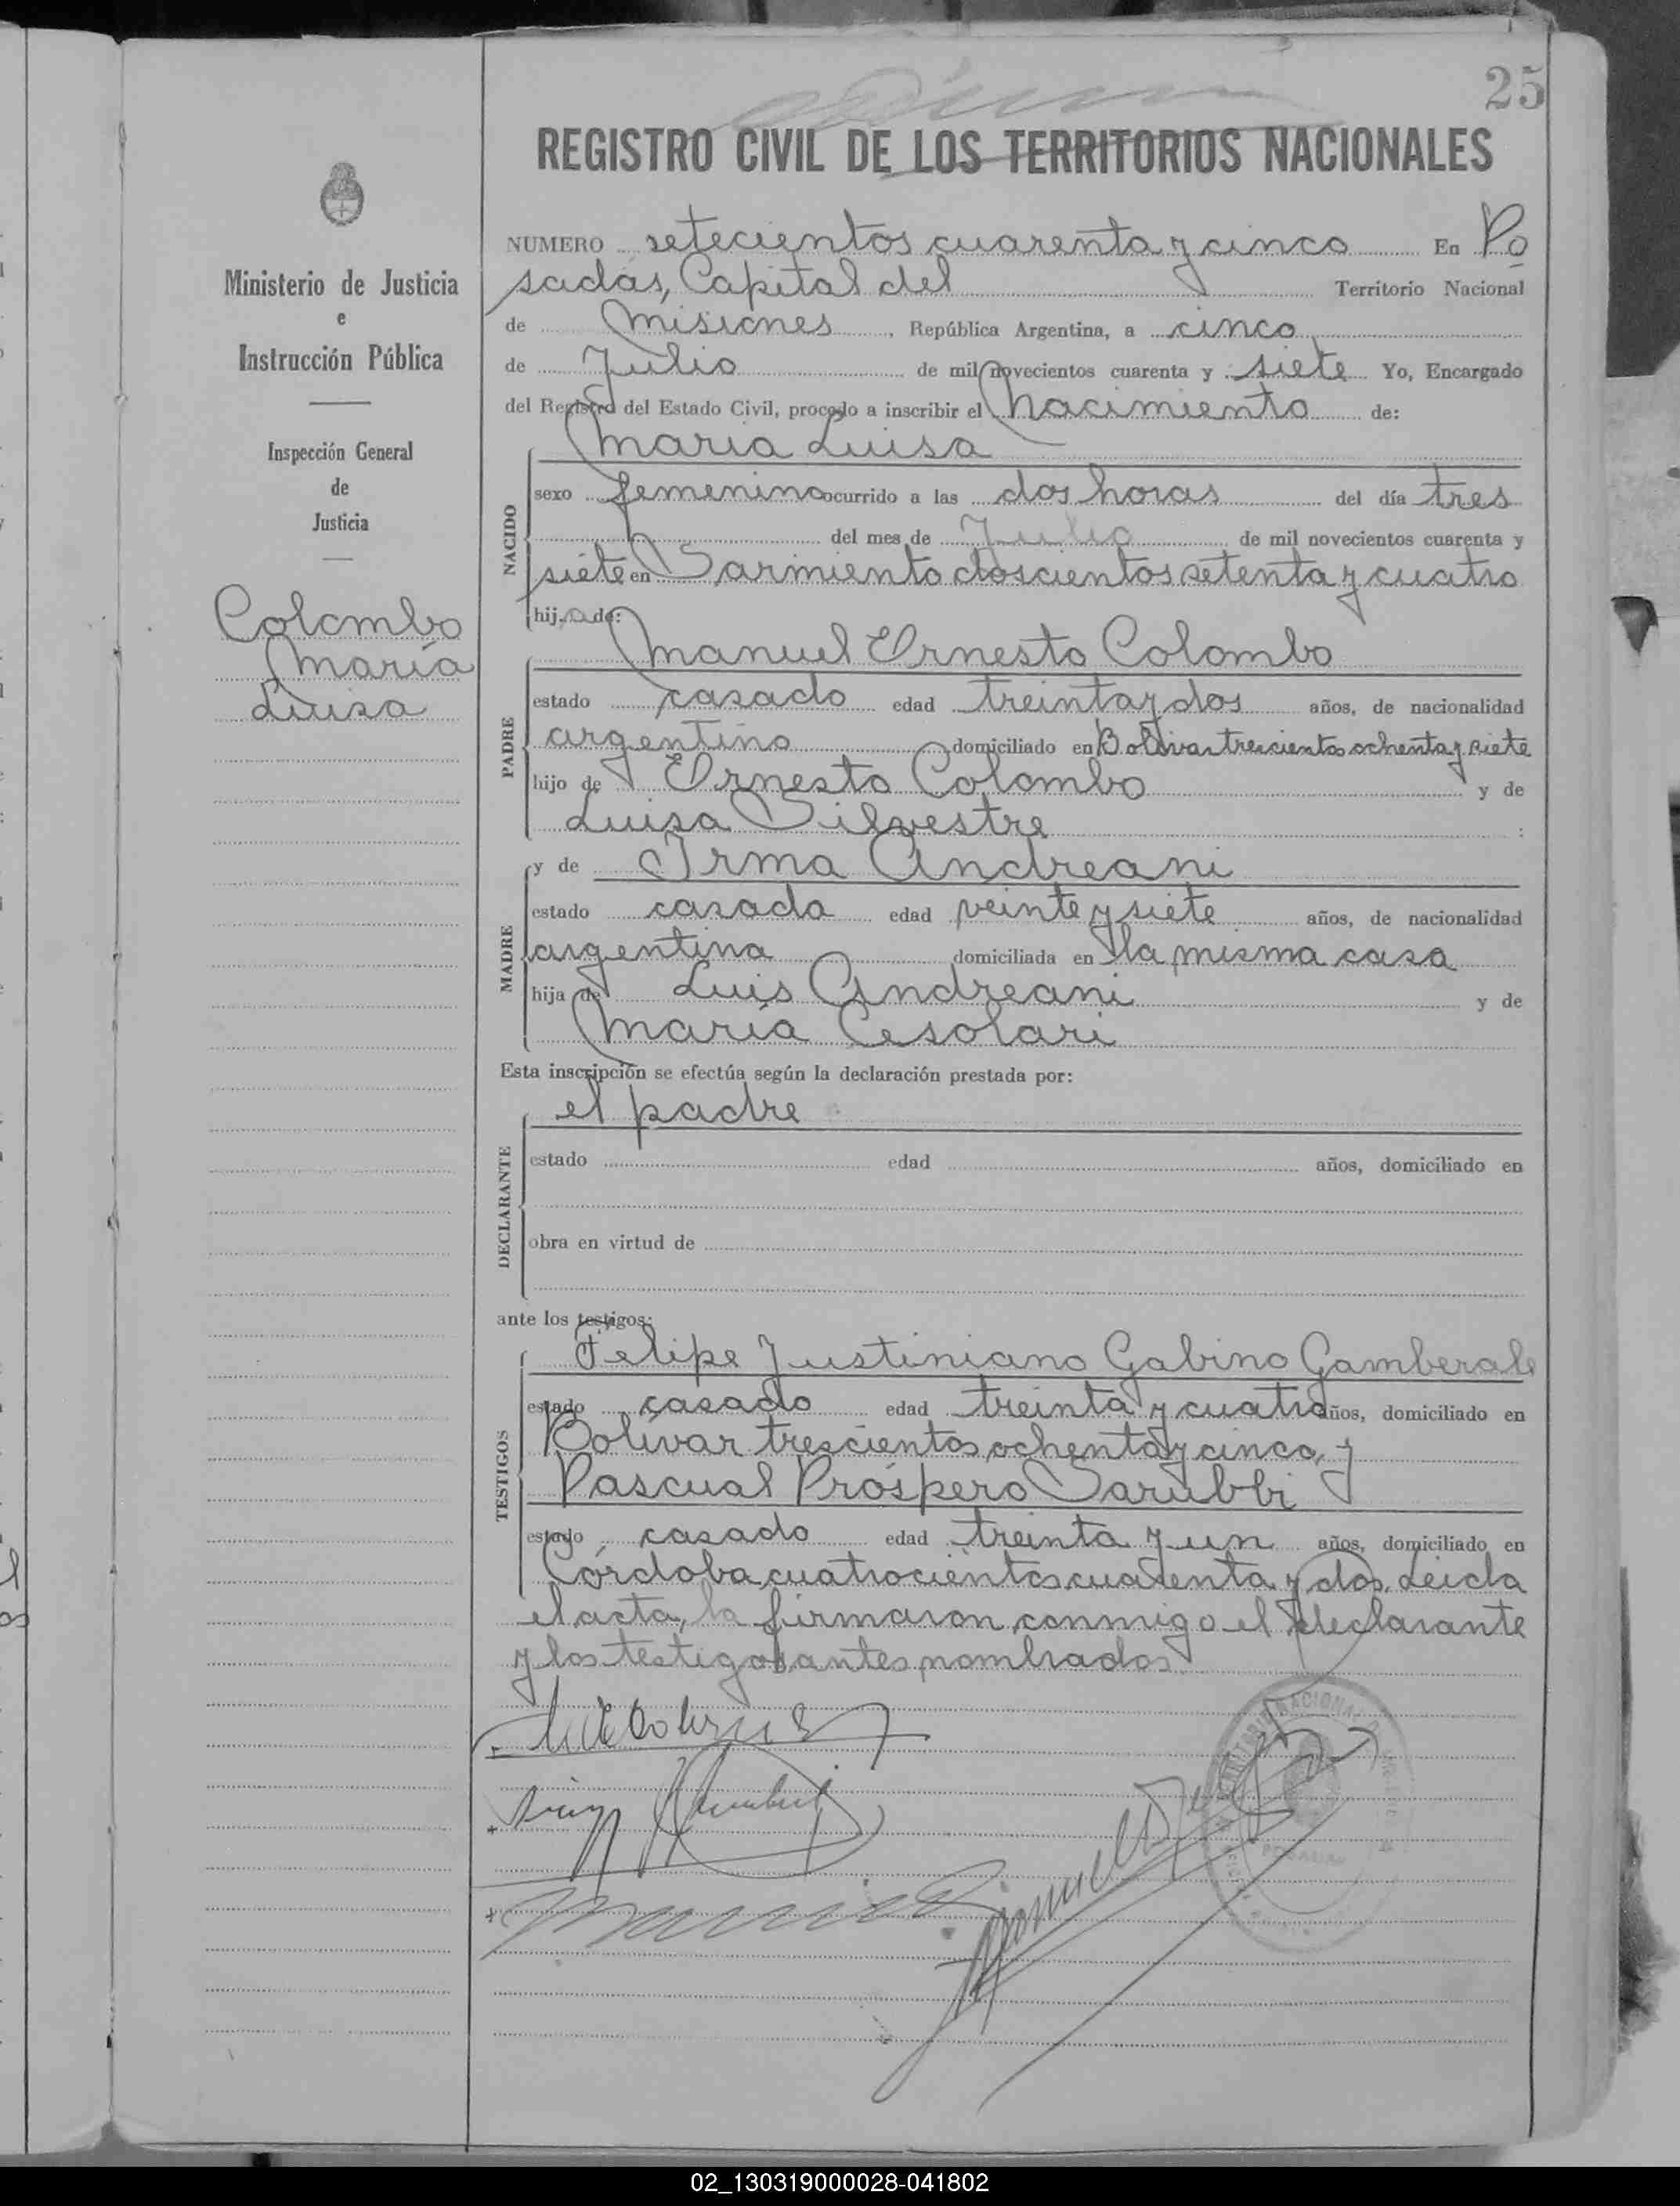 25
REGISTRO CIVIL DE LOS TERRITORIOS NACIONALES
Ministerio de Justicia
e
Instrucción Pública
Inspección General
de
Justicia
Colombo
María
Luisa
NUMERO setecientos cuarenta y cinco En Po
sadas, Capital del Territorio Nacional
de Misiones, República Argentina, a cinco
de Julio de mil novecientos cuarenta y siete Yo, Encargado
del Registro del Estado Civil, procedo a inscribir el nacimiento de:
María Luisa
NACIDO
sexo femenino ocurrido a las dos horas del día tres
del mes de Julio de mil novecientos cuarenta y
siete en Sarmiento doscientos setenta y cuatro
hija de:
Manuel Ernesto Colombo
PADRE
estado casado edad treinta y dos años, de nacionalidad
argentino domiciliado en Bolívar trescientos ochenta y siete
hijo de Ernesto Colombo y de
Luisa Silvestre :
MADRE
y de Irma Andreani
estado casada edad veinte y siete años, de nacionalidad
argentina domiciliada en la misma casa
hija de Luis Andreani y de
María Cesolari
Esta inscripción se efectúa según la declaración prestada por:
el padre
DECLARANTE
estado edad años, domiciliado en
obra en virtud de
ante los testigos:
TESTIGOS
Felipe Justiniano Gabino Gamberale
estado casado edad treinta y cuatro años, domiciliado en
Bolívar trescientos ochenta y cinco, y
Pascual Próspero Sarubbi
estado casado edad treinta y un años, domiciliado en
Córdoba cuatrocientos cuarenta y dos. Leida
el acta, la firmaron conmigo el declarante
y los testigos antes nombrados.
02_130319000028-041802